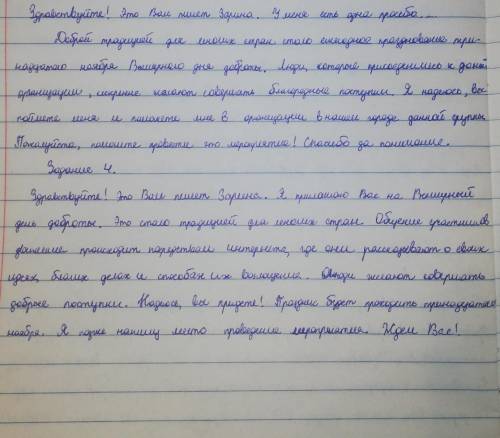 Здравствуйте! Это Вам пишет Зарина. У меня есть одна просьба...
Доброй традицией для многих стран стало ежегодное празднование три-
надцатого ноября Всемирного дня доброты. Люди, которые присоединились к данной
организации, искренне желают совершать благородные поступки. Я надеюсь, вы
поймете меня и поможете мне в организации в нашем городе данной группы.
Пожалуйста, помогите провести это мероприятие! Спасибо за понимание.
Задание 4.
Здравствуйте! Это Вам пишет Зарина. Я приглашаю Вас на Всемирный
день доброты. Это стало традицией для многих стран. Общение участников
движение происходит посредством интернета, где они рассказывают о своих
идеях, благих делах и способах их воплощения. Люди желают совершать
доброые поступки. Надеюсь, вы придете! Праздник будет проходить тринадцатого
ноября. Я позже напишу место проведение мероприятия. Ждем Вас!